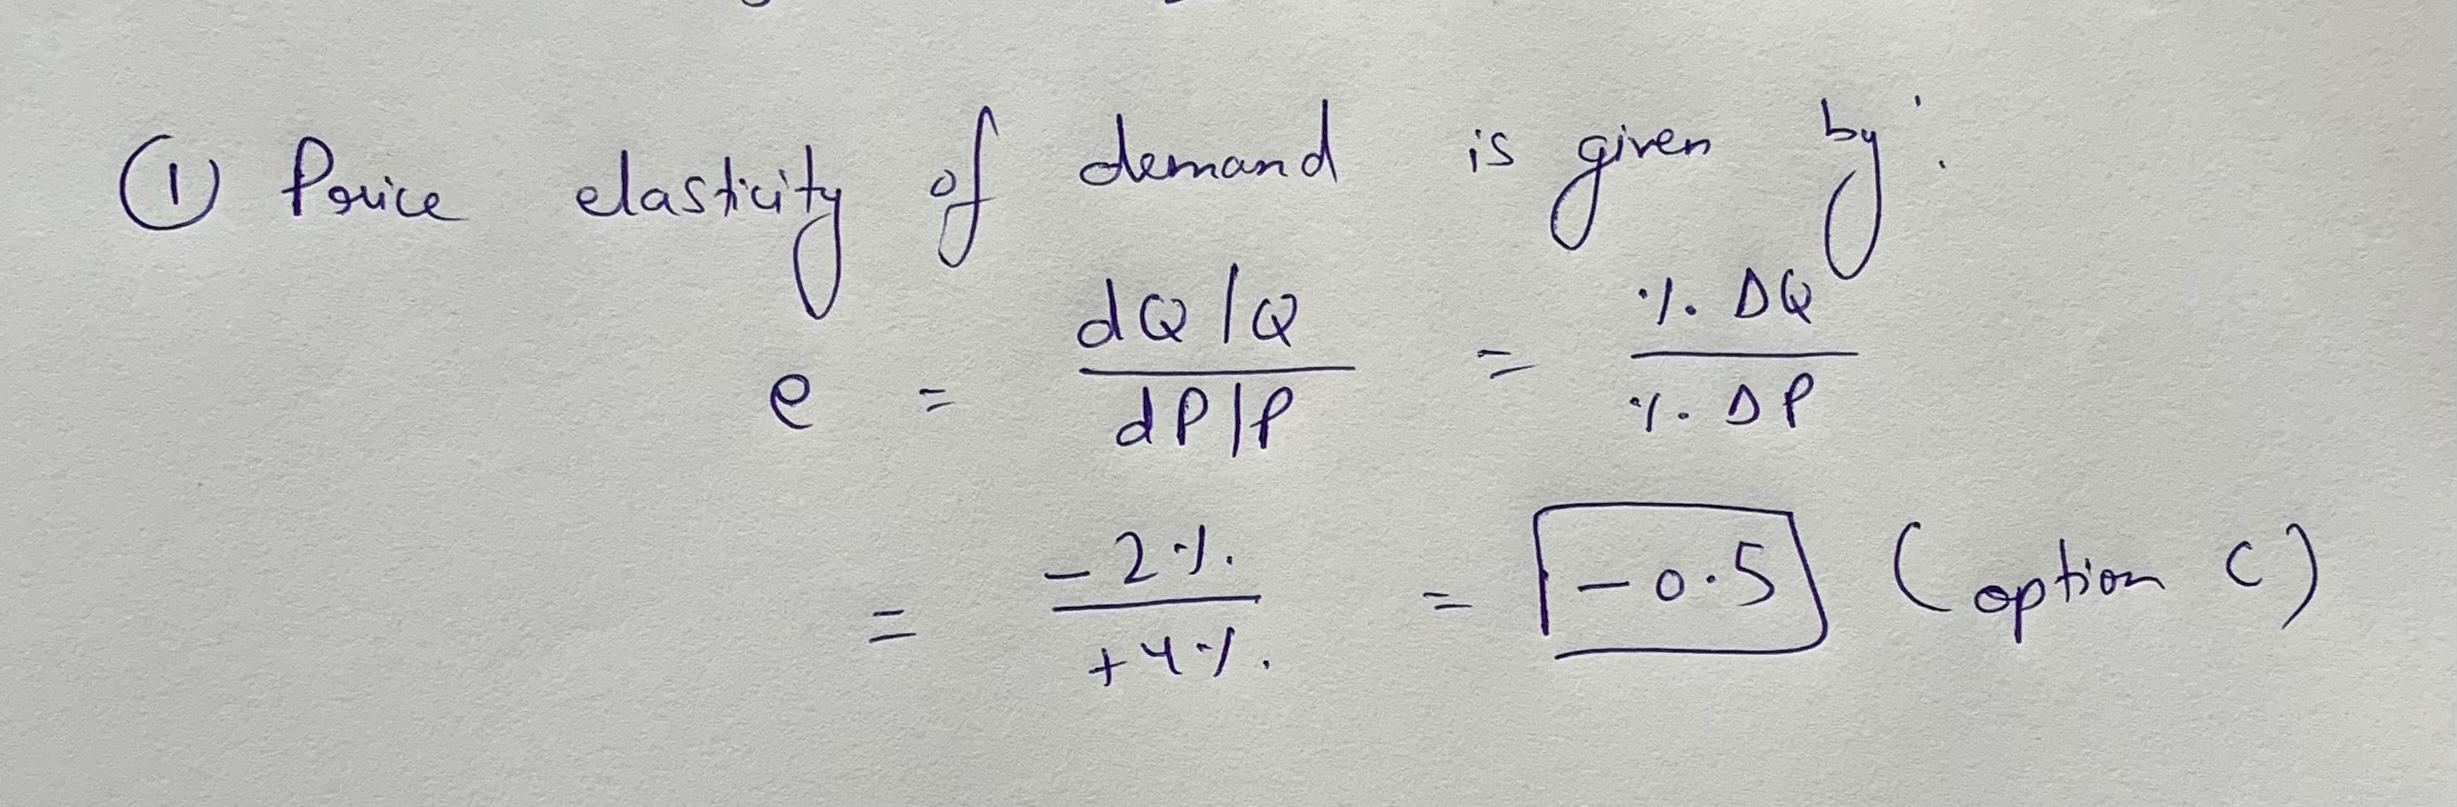 ① Price elasticity of demand is given by:
e = dQ/Q / dP/P = % ΔQ / % ΔP
= -2% / +4% = -0.5 (option C)